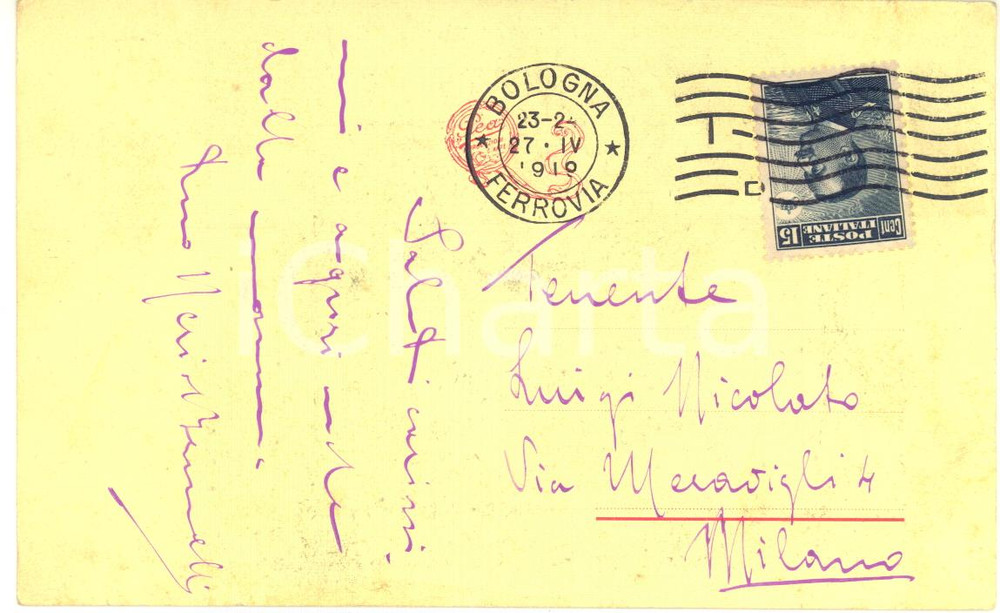 BOLOGNA
23-2
27 · IV
FERROVIA
Cent 15
POSTE
ITALIANE
Tenente
Luigi Nicolato
Via Meravigli 4
Milano
Saluti carissimi
e auguri anche
dalla mamma
iCharta